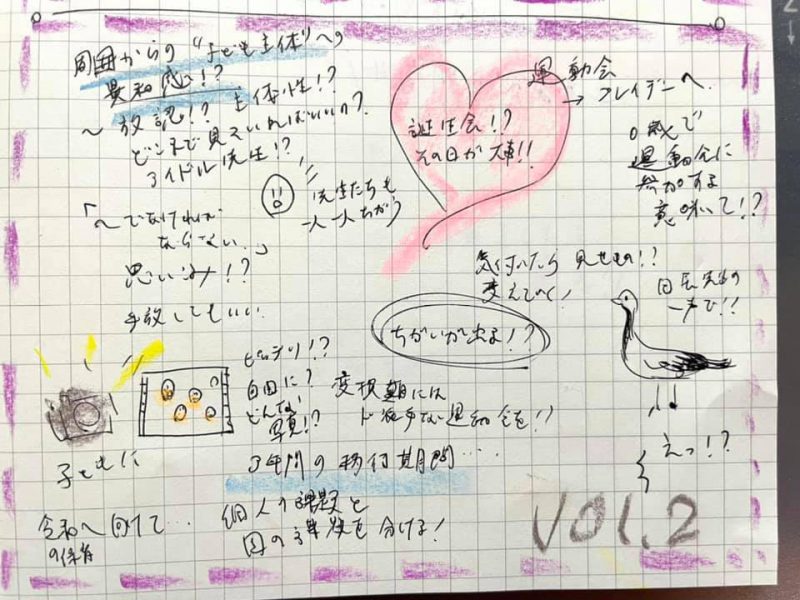 周囲からの "子ども主体"への
異和感!?
〜放認!? 主体性!?
どこまで見えていればいいの?
アイドル先生!?
先生たちも
一人一人ちがう
「〜であければ
ならない…」
思いこみ!?
手放してもいい
誕生会!?
その日が大事!!
運動会
→ プレイデーへ
0歳で
運動会に
参加する
意味って!?
気付いたら 見せもの!?
変えていく!
ちがいが出る!?
園長先生の
一声で!!
えっ!?
子どもに
ピッタリ!?
自由に?
どんな
写真!?
変換期には
ド派手な運動会を!!
3年間の移行期間……
個人の課題と
園の課題を分ける!
令和へ向けて…
の保育
VOL.2